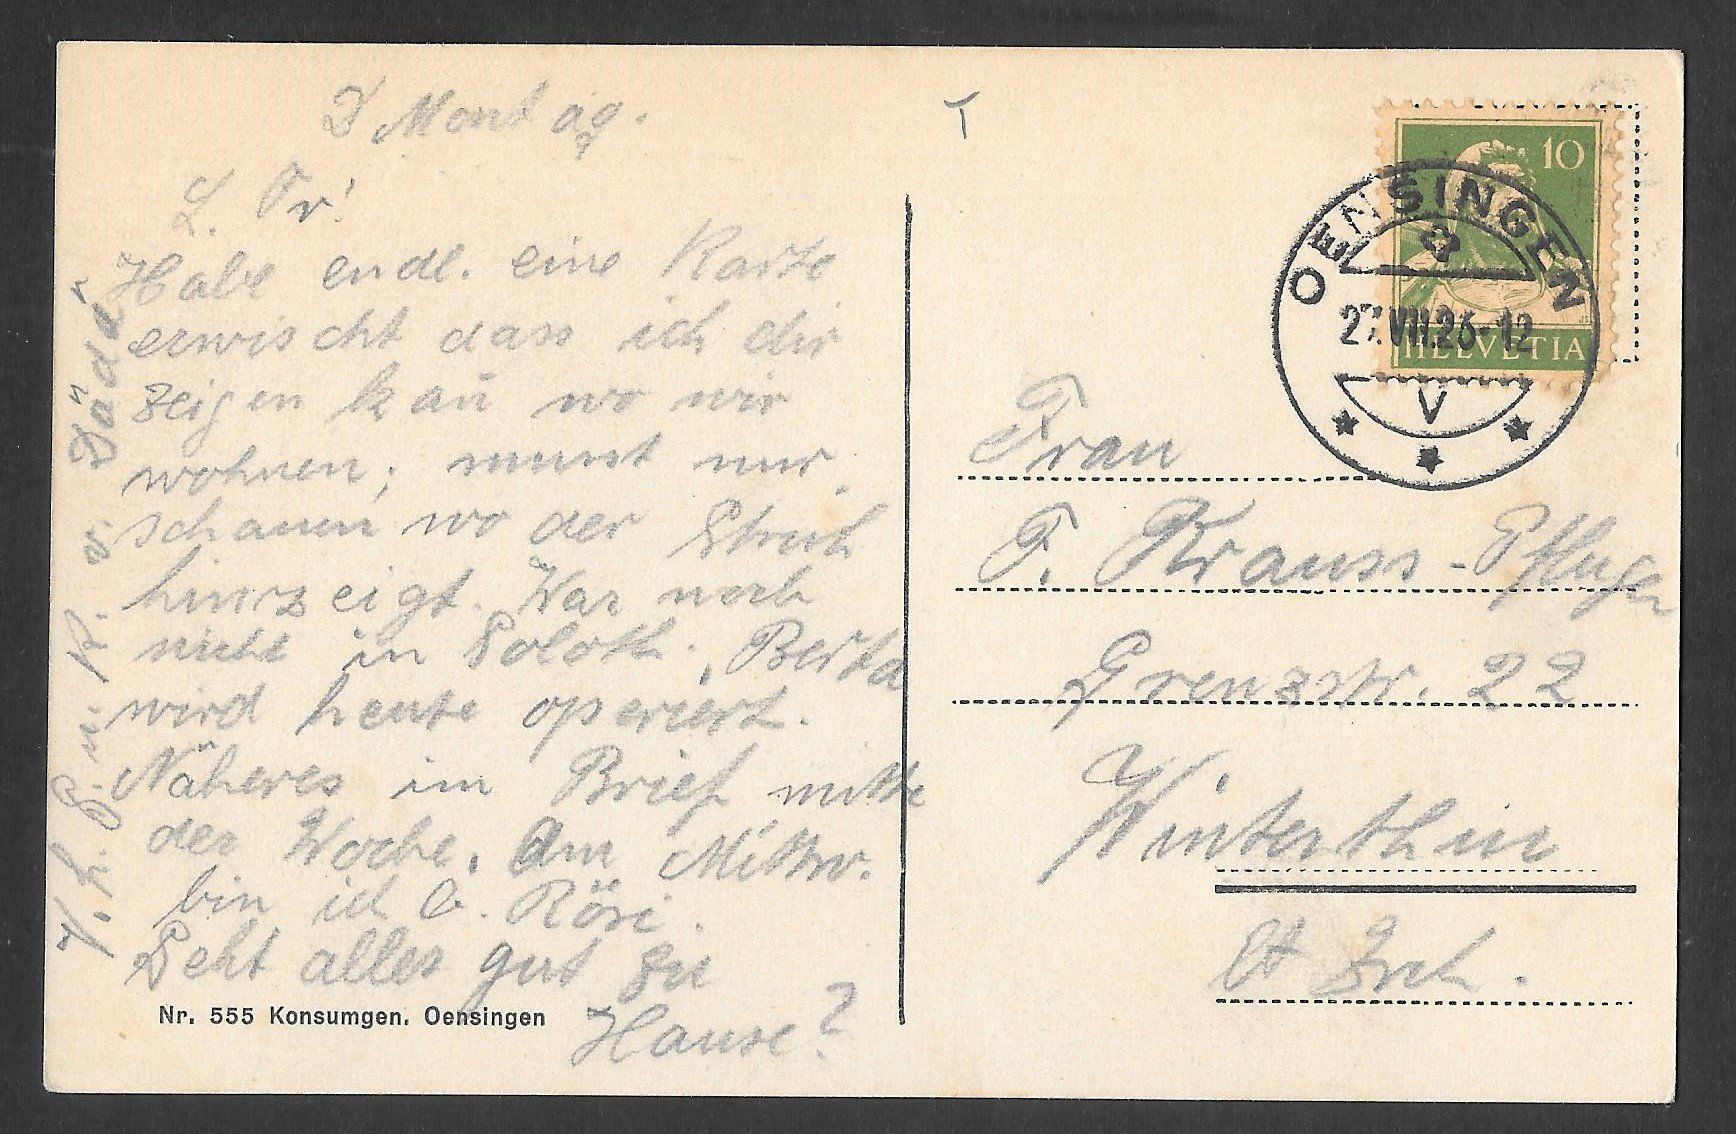 Montag.
L. Fr!
Habe endl. eine Karte
erwischt dass ich dir
zeigen kañ wo wir
wohnen; musst nur
schauen wo der Strich
hinzeigt. War noch
nicht in Soloth. Berta
wird heute operiert.
Näheres im Brief mitte
der Woche. Am Mittw.
bin ich b. Rösi.
Geht alles gut zu
Hause?
G. u. K. v.
Nr. 555 Konsumgen. Oensingen
10
HELVETIA
OENSINGEN
27.VIII.26-12
V
Frau
F. Krauss-Pfluger
Grenzstr. 22
Winterthur
Ct Zrch.